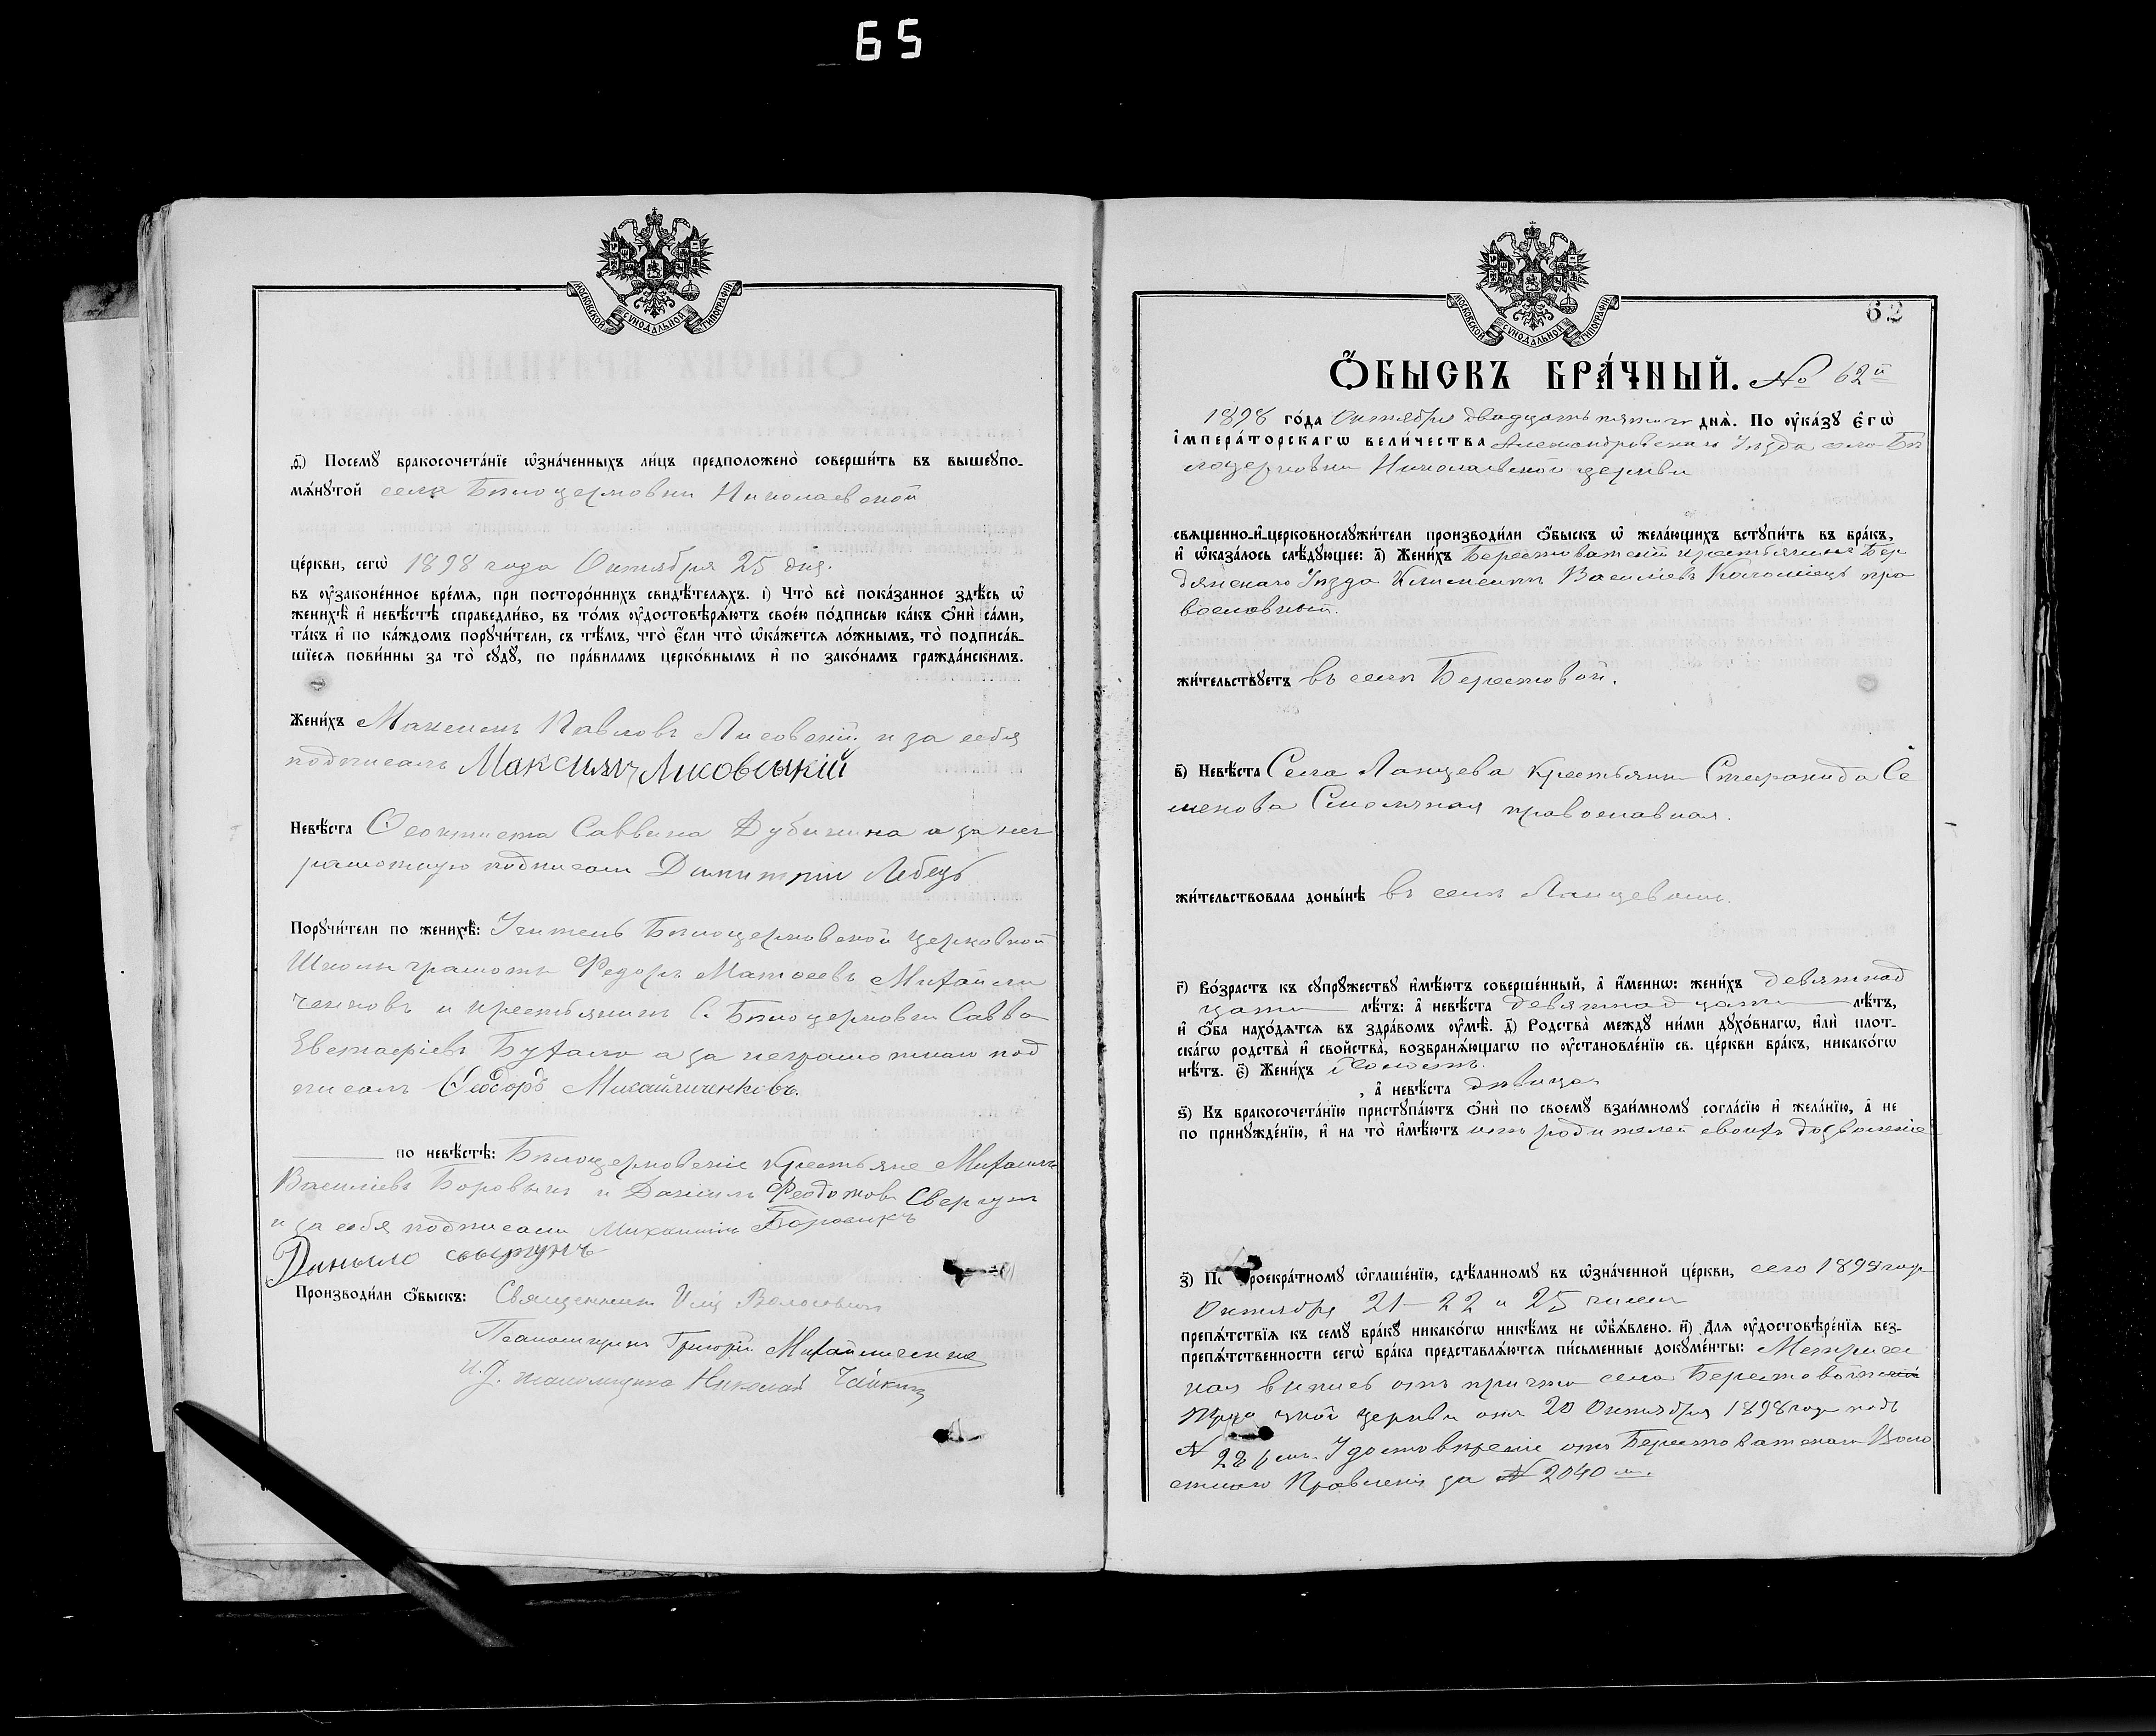 65
МОСКОВСКОЙ СУНОДАЛЬНОЙ ТИПОГРАФІИ
Ѳ҃) Посемꙋ бракосочета́нїе ѡ҆зна́ченныхъ ли́цъ предположено̀ соверши́ть въ вышеꙋпо-
мѧ́нꙋтой села Бѣлоцерковки Николаевской
це́ркви, сегѡ̀ 1898 года Октября 25 дня.
въ ᲂу҆зако́не́нное вре́мѧ, при посторо́ннихъ свидѣ́телѧхъ. і҃) Что̀ всѐ пока́занное здѣ́сь ѡ҆
женихѣ̀ и҆ невѣ́стѣ справедли́во, въ то́мъ ᲂу҆достовѣрѧ́ютъ свое́ю по́дписью ка́къ ѻ҆нѝ са́ми,
та́къ и҆ по ка́ждомъ порꙋчи́тели, съ тѣ́мъ, что̀ є҆́сли что̀ ѡ҆ка́жетсѧ ло́жнымъ, то̀ подписа́в-
шїесѧ пови́нны за то̀ сꙋдꙋ̀, по пра́виламъ церко́внымъ и҆ по зако́намъ гражда́нскимъ.
Жени́хъ Максимъ Павловъ Лисовскій и за себя
подписалъ Максимъ Лисовыцкій
Невѣ́ста Ѳеоктиста Саввина Дубинина а за нег
рамотную подписалъ Димитрій Лебедь
Порꙋчи́тели по женихѣ̀: Учитель Бѣлоцерковской церковной
Школы грамоты Федоръ Матѳеевъ Михайли
ченковъ и крестьянинъ с. Бѣлоцерковки Савва
Евстафіевъ Бухало а за неграмотнаго под
писалъ Ѳеодоръ Михайличенковъ.
по невѣ́стѣ: Бѣлоцерковскіе крестьяне Михаилъ
Василіевъ Боровикъ и Даніилъ Феодотовъ Свергунъ
и за себя подписали Михаилъ Боровикъ
Даныло свыргунъ
Производи́ли ѻ҆́быскъ: Священникъ Илія Волосевичъ
Псаломщикъ Григорій Михайличенко
и. д. псаломщика Николай Чайкинъ
МОСКОВСКОЙ СУНОДАЛЬНОЙ ТИПОГРАФІИ
62
Ѻ҆́БЫСКЪ БРА́ЧНЫЙ. № 62й
1898 го́да Октября двадцать пятаго днѧ̀. По ᲂу҆ка́зꙋ є҆гѡ̀
і҆мпера́торскагѡ вели́чества Александровскаго Уѣзда села Бѣ
лоцерковки Николаевской церкви
свѧщенно-и҆-церковнослꙋжи́тели производи́ли ѻ҆́быскъ ѡ҆ жела́ющихъ встꙋпи́ть въ бра́къ,
и҆ ѡ҆каза́лось слѣ́дꙋющее: а҃) Жени́хъ Берестоватскій крестьянинъ Бер
дянскаго Уѣзда Климентъ Василіевъ Коломіецъ пра
вославный.
жи́тельствꙋетъ въ селѣ Берестовой.
в҃) Невѣ́ста Села Ланцева крестьянка Стефанида Се
менова Смоляная православная.
жи́тельствовала доны́нѣ въ селѣ Ланцевомъ.
г҃) Во́зрастъ къ сꙋпрꙋ́жествꙋ и҆мѣ́ютъ соверше́нный, а҆ и҆́меннѡ: жени́хъ девятнад
цати лѣ́тъ: а҆ невѣ́ста девятнадцати лѣ́тъ,
и҆ ѻ҆́ба нахо́дѧтсѧ въ здра́вомъ ᲂу҆мѣ̀. д҃) Родства̀ междꙋ̀ ни́ми дꙋхо́внагѡ, и҆лѝ плот-
ска́гѡ родства̀ и҆ сво́йства̀, возбранѧ́ющагѡ по ᲂу҆становле́нїю св. це́ркви бра́къ, никако́гѡ
нѣ́тъ. є҃) Жени́хъ холостъ.
, а҆ невѣ́ста дѣвица
ѕ҃) Къ бракосочета́нїю пристꙋпа́ютъ ѻ҆нѝ по своемꙋ̀ взаи́мномꙋ согла́сїю и҆ жела́нїю, а҆ не
по принꙋжде́нїю, и҆ на то̀ и҆мѣ́ютъ отъ родителей своихъ дозволеніе
з҃) По троекра́тномꙋ ѡ҆глаше́нїю, сдѣ́ланномꙋ въ ѡ҆зна́ченной це́ркви, сего 1898 года
Октября 21-22 и 25 чиселъ
препѧ́тствїѧ къ семꙋ̀ бра́кꙋ никако́гѡ никѣ́мъ не ѡ҆б̾ѧ́влено. и҃) Длѧ̀ ᲂу҆достовѣре́нїѧ без-
препѧ́тственности сегѡ̀ бра́ка представлѧ́ютсѧ пи́сьменные докꙋме́нты: Метриче
ская выпись отъ причта села Берестоватской
церкви отъ 20 Октября 1898 года подъ
№ Удостовѣреніе отъ Берестоватскаго Воло
стнаго Правленія за № 2040 м.